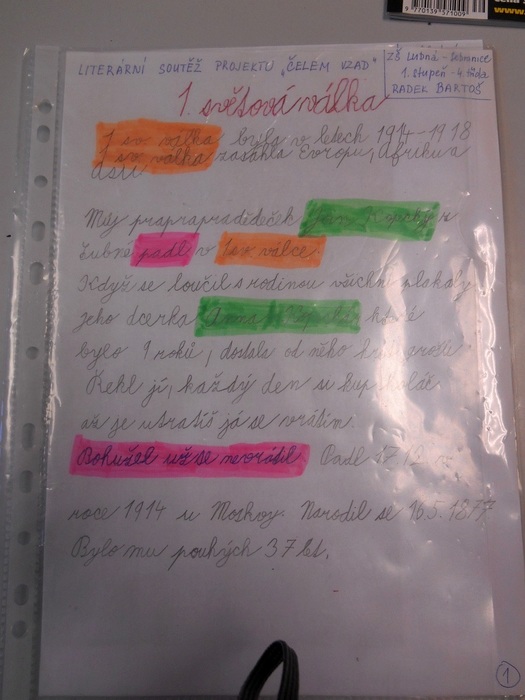 9 770139 571009
www.
LITERÁRNÍ SOUTĚŽ PROJEKTU „ČELEM VZAD"
ZŠ Lubná - Sebranice
1. stupeň - 4. třída
RADEK BARTOŠ
1. světová válka
1 sv. válka byla v letech 1914-1918
1 sv. válka zasáhla Evropu, Afriku a
Asii
Můj praprapradědeček Jan Kopecký z
Lubné padl v 1 sv. válce.
Když se loučil s rodinou všichni plakaly
jeho dcerka Anna které
bylo 9 roků, dostala od něho groše
Řekl jí, každý den si kup koláč
až je utratíš já se vrátím.
Bohužel už se nevrátil. Padl 17 12 v
roce 1914 u Moskvy. Narodil se 16.5.1877
Bylo mu pouhých 37 let.
1